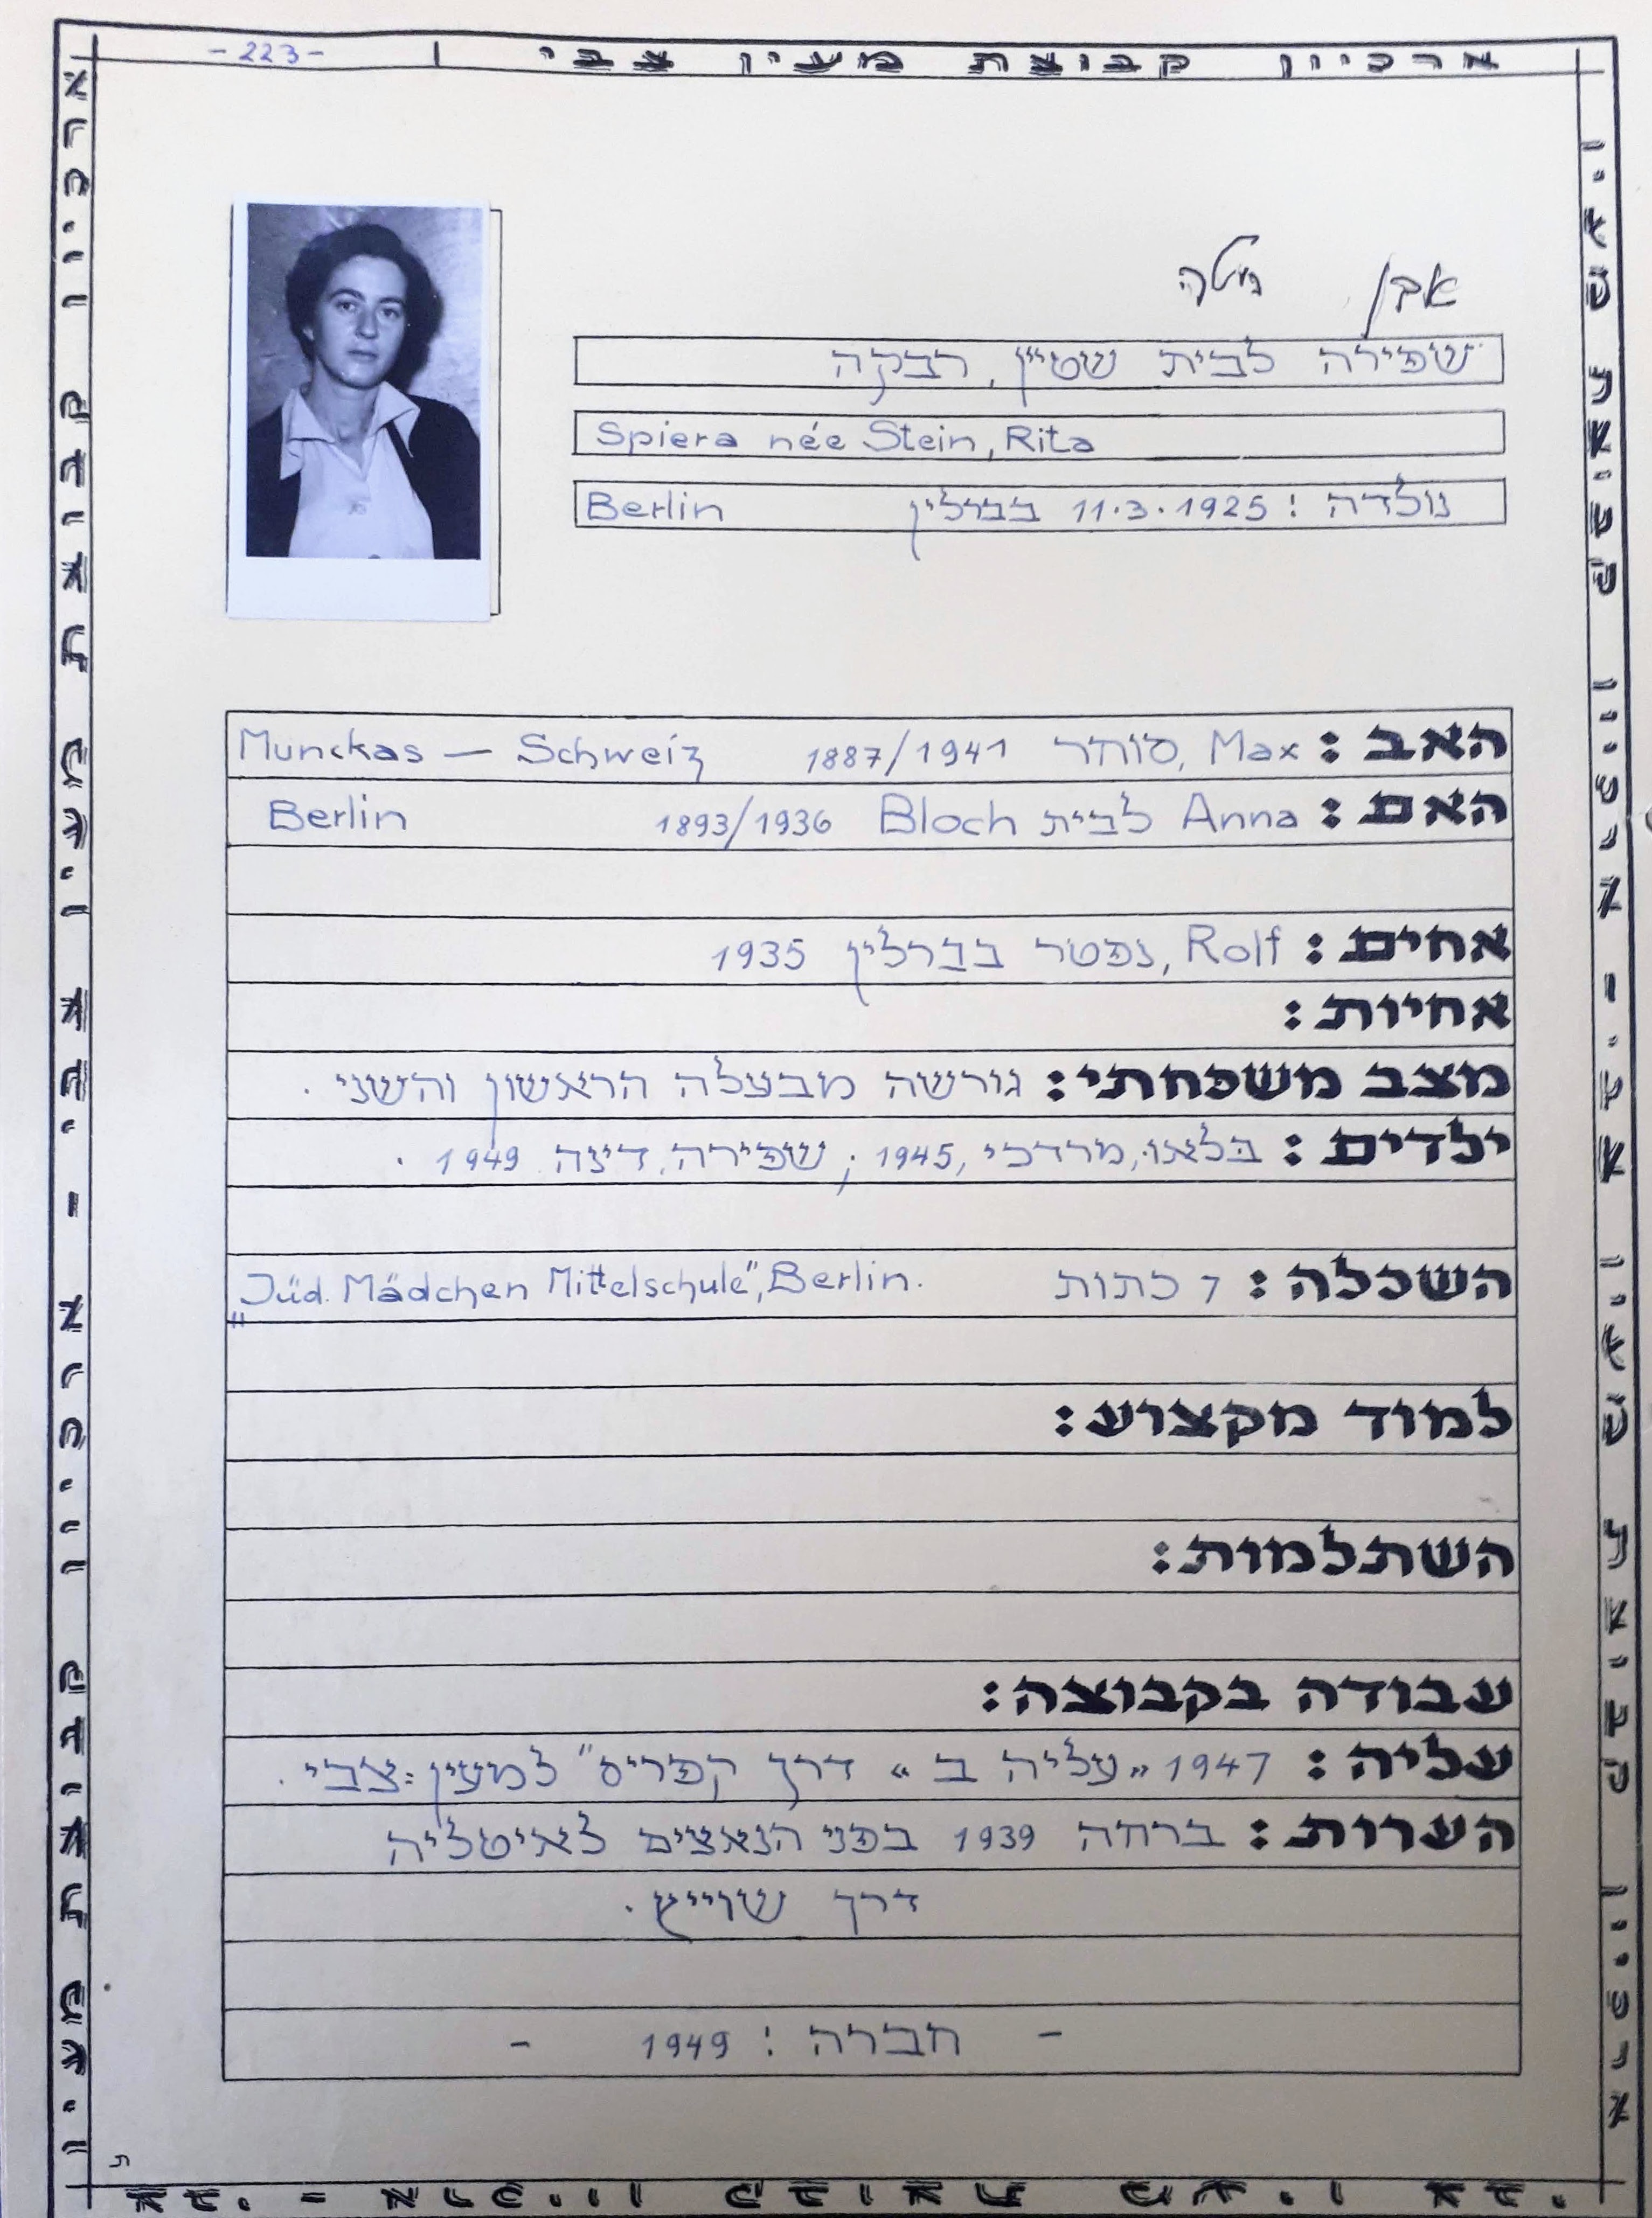 ארכיון קבוצת מעין צבי
-223-
אבן
שפירה לבית שטיין, רבקה
Spiera née Stein, Rita
נולדה: 11.3.1925 בברלין Berlin
האב: Max, סוחר 1887/1941 Munckas — Schweiz
האם: Anna לבית Bloch 1893/1936 Berlin
אחים: Rolf, נפטר בברלין 1935
אחיות:
מצב משפחתי: גורשה מבעלה הראשון והשני.
ילדים: בלאו, מרדכי, 1945; שפירה, דיצה 1949.
השכלה: 7 כתות „Jüd. Mädchen Mittelschule", Berlin.
למוד מקצוע:
השתלמות:
עבודה בקבוצה:
עליה: 1947 „עליה ב" דרך קפריס" למעין-צבי.
הערות: ברחה 1939 בפני הנאצים לאיטליה
דרך שוייץ.
- חברה: 1949 -